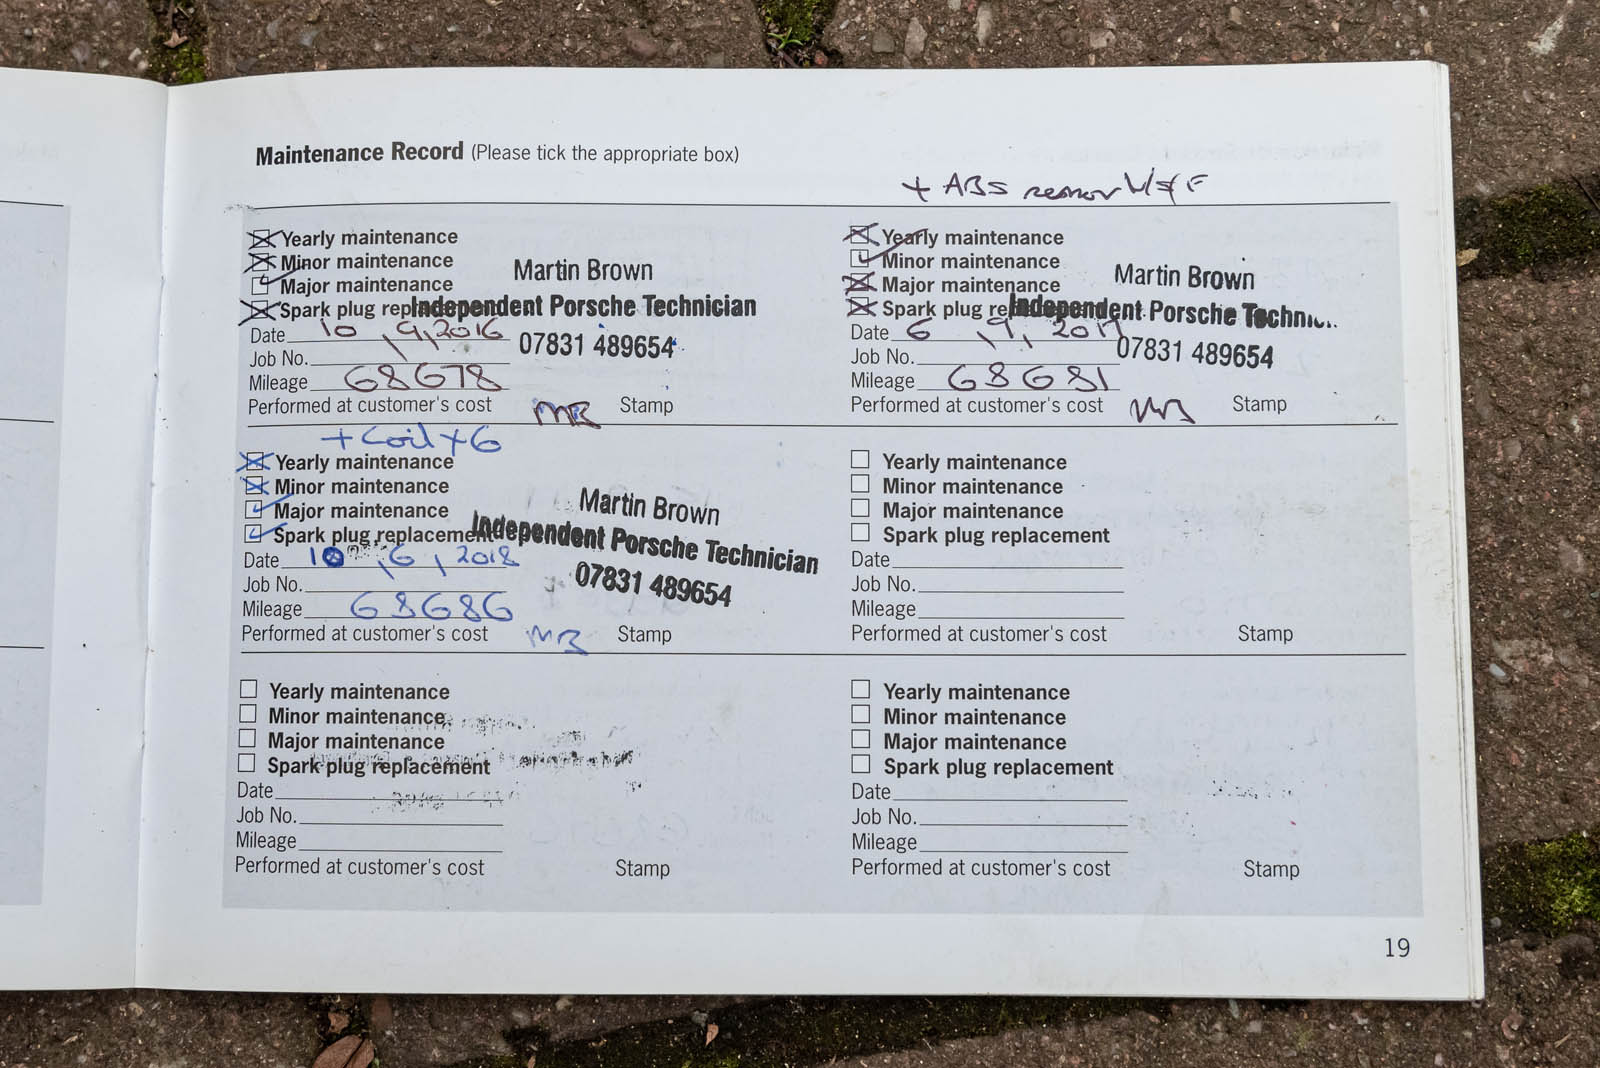 Maintenance Record (Please tick the appropriate box)
+ ABS sensor N/S F
Yearly maintenance
Minor maintenance
Major maintenance
Spark plug replacement
Date 10 , 9, 2016
Job No.
Mileage 68678
Performed at customer's cost
MB
Stamp
Martin Brown
Independent Porsche Technician
07831 489654
Yearly maintenance
Minor maintenance
Major maintenance
Spark plug
Date 6 , 9, 2017
Job No.
Mileage 68681
Performed at customer's cost
MB
Stamp
Martin Brown
Independent Porsche Technic
07831 489654
+ Coil x 6
Yearly maintenance
Minor maintenance
Major maintenance
Spark plug replacement
Date 10 , 6 , 2018
Job No.
Mileage 68686
Performed at customer's cost
MB
Stamp
Martin Brown
Independent Porsche Technician
07831 489654
Yearly maintenance
Minor maintenance
Major maintenance
Spark plug replacement
Date
Job No.
Mileage
Performed at customer's cost
Stamp
Yearly maintenance
Minor maintenance
Major maintenance
Spark plug replacement
Date
Job No.
Mileage
Performed at customer's cost
Stamp
Yearly maintenance
Minor maintenance
Major maintenance
Spark plug replacement
Date
Job No.
Mileage
Performed at customer's cost
Stamp
19